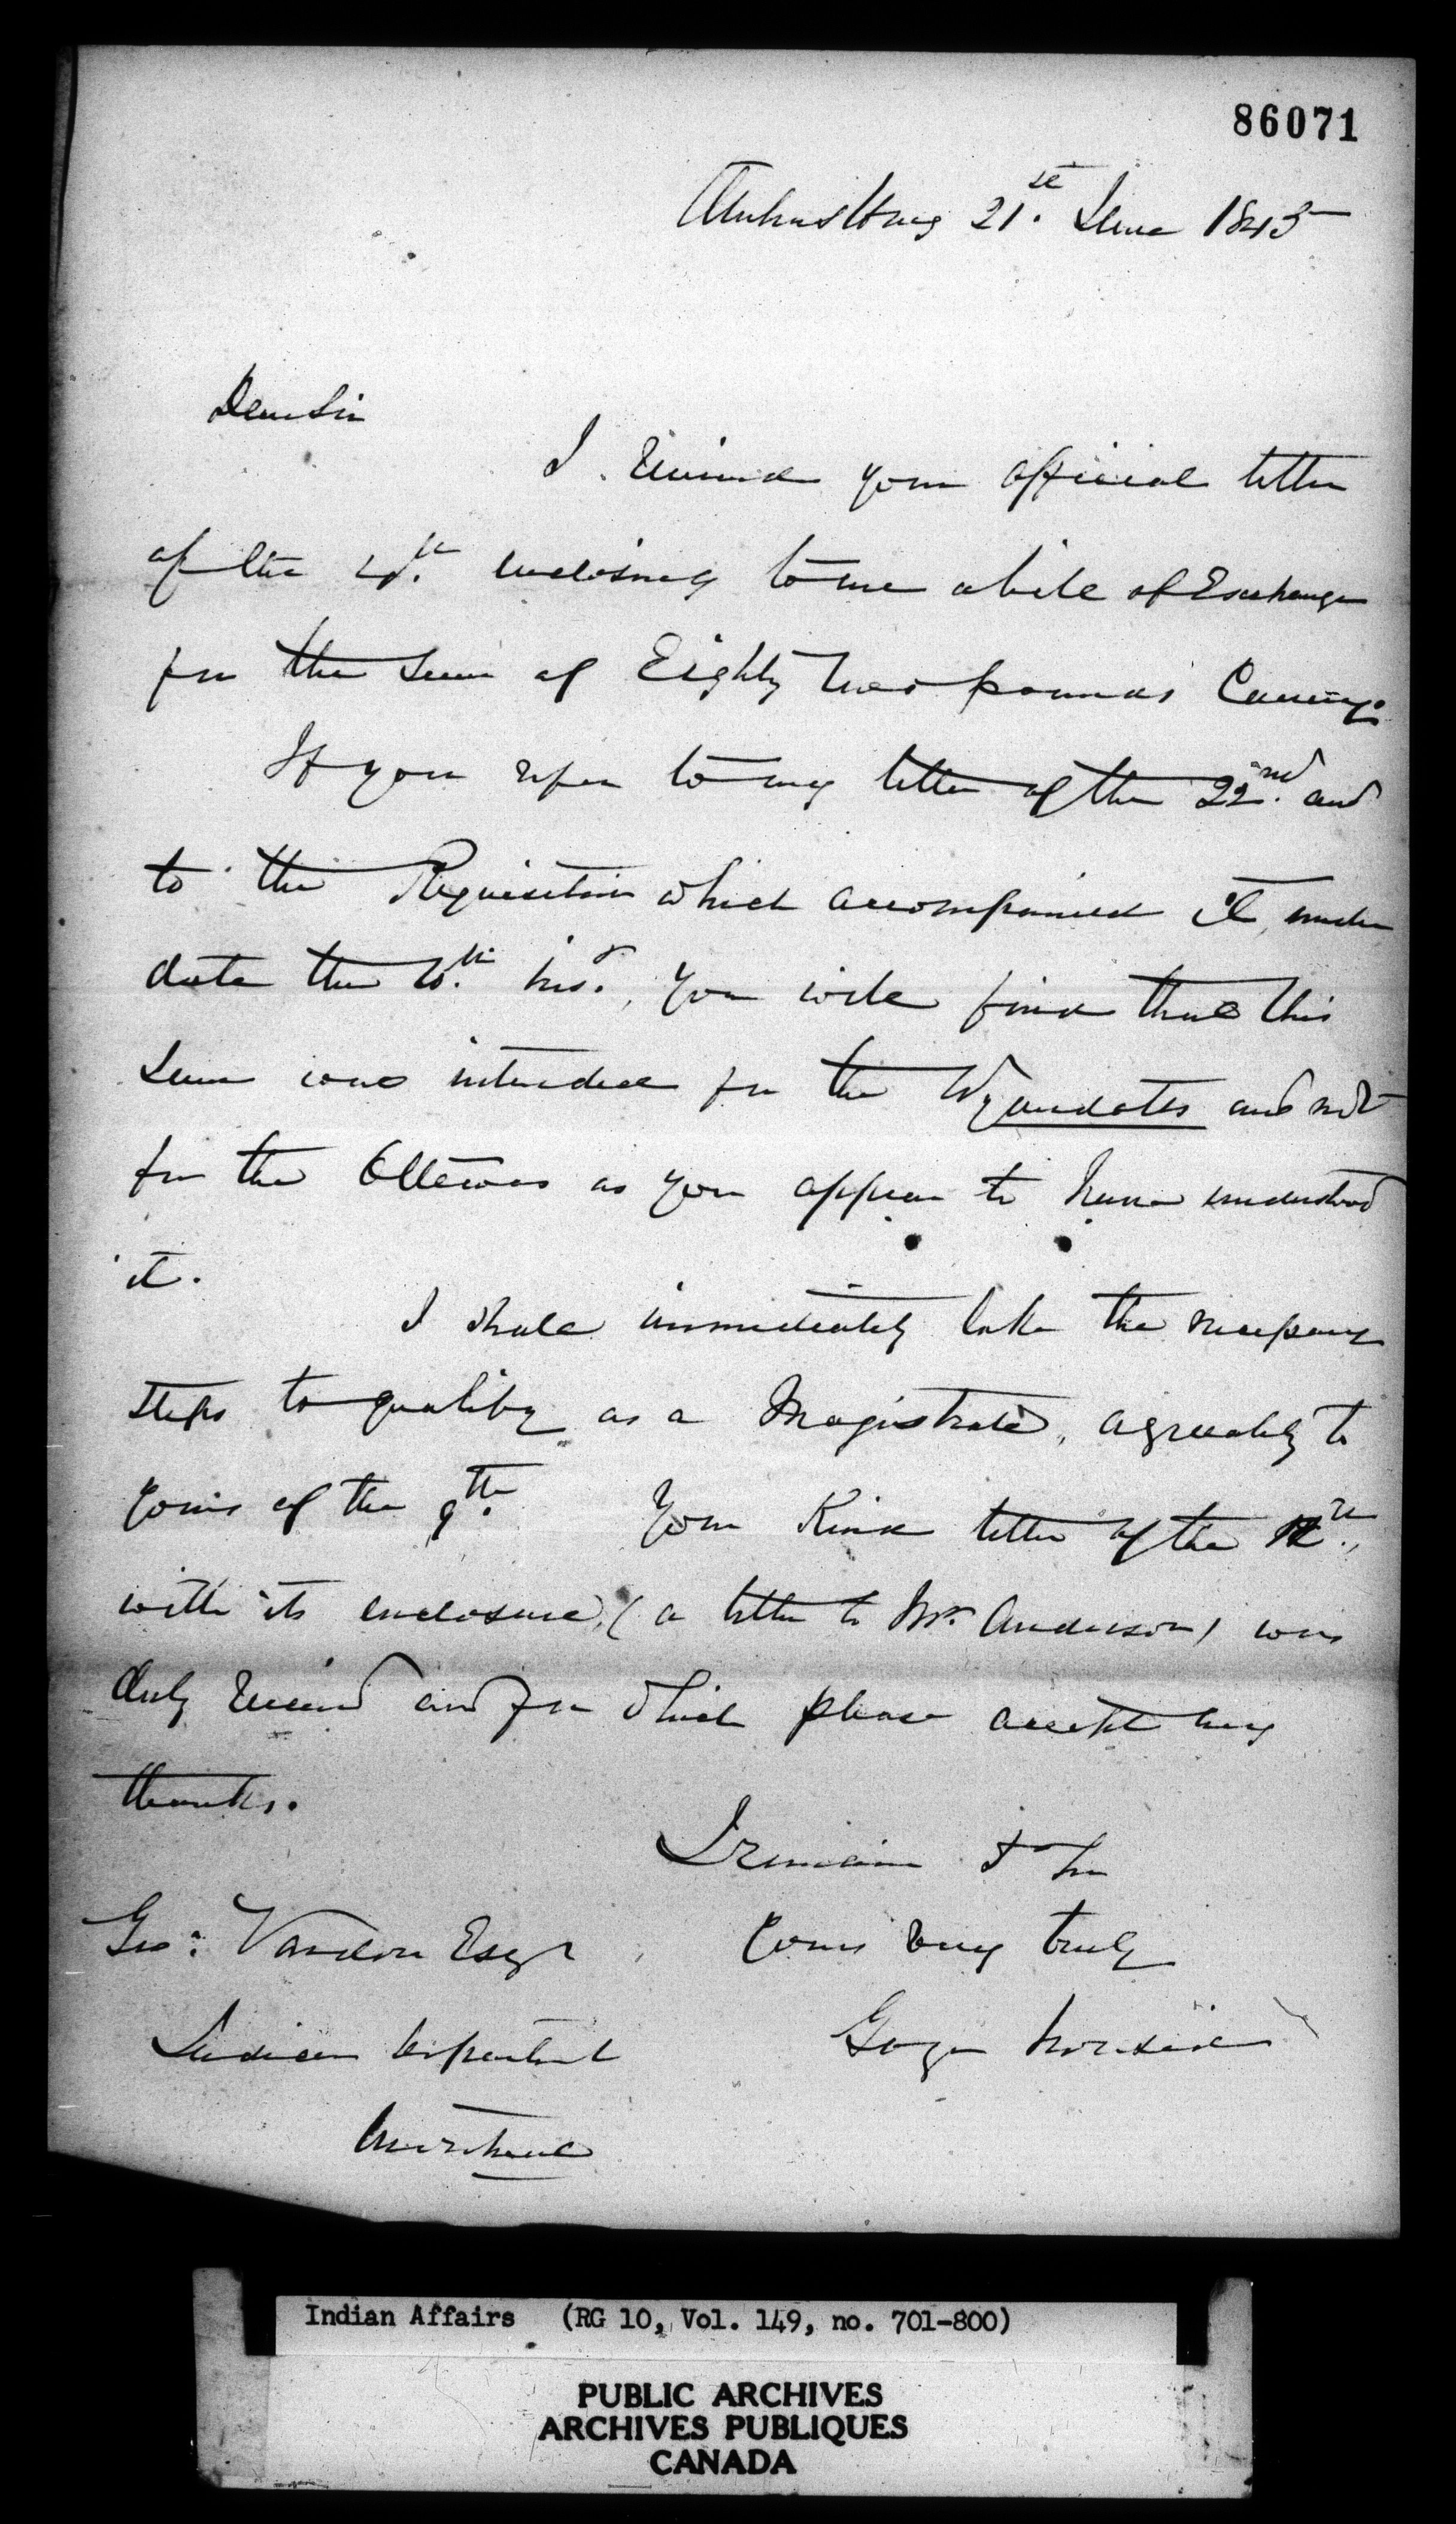 86071
Amherstburg 21.st June 1845
Dear Sir
I received your official letter
of the enclosing to me a bill of Exchange
for the sum of Eighty two pounds Curcy.
If you refer to my letter of the 22.nd and
to the Requisition which accompanied it, under
date the 10.th ins.t, you will find that this
sum was intended for the Wyandotts and not
for the Ottawas as you appear to have understood
it.
I shall immediately take the necessary
steps to qualify as a Magistrate, agreeably to
yours of the 9.th Your kind letter of the
with its enclosure, (a letter to Mr. Anderson) was
duly received and for which please accept my
thanks.
I remain D Sir
Yours very truly
Geo: Vardon Esqr
George Ironside
Indian Department
Montreal
Indian Affairs (RG 10, Vol. 149, no. 701-800)
PUBLIC ARCHIVES
ARCHIVES PUBLIQUES
CANADA